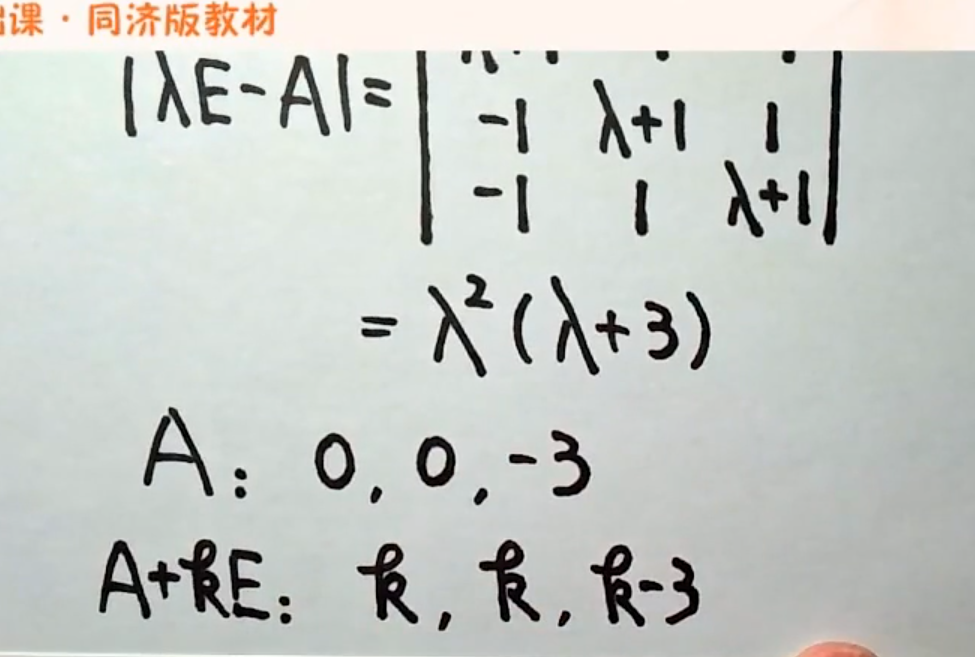 课 · 同济版教材
|λE-A|=
-1 λ+1 1
-1 1 λ+1
= λ²(λ+3)
A: 0, 0, -3
A+kE: k, k, k-3